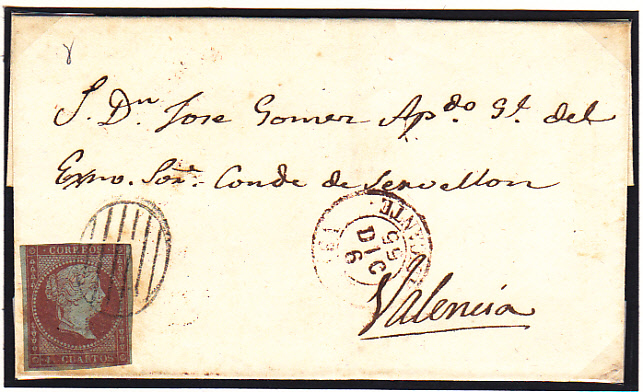 S. Dn. Jose Gomez Apdo. Gl. del
Exmo. Sor. Conde de Servellon
Valencia
6
DIC
55
CORREOS
4 CUARTOS